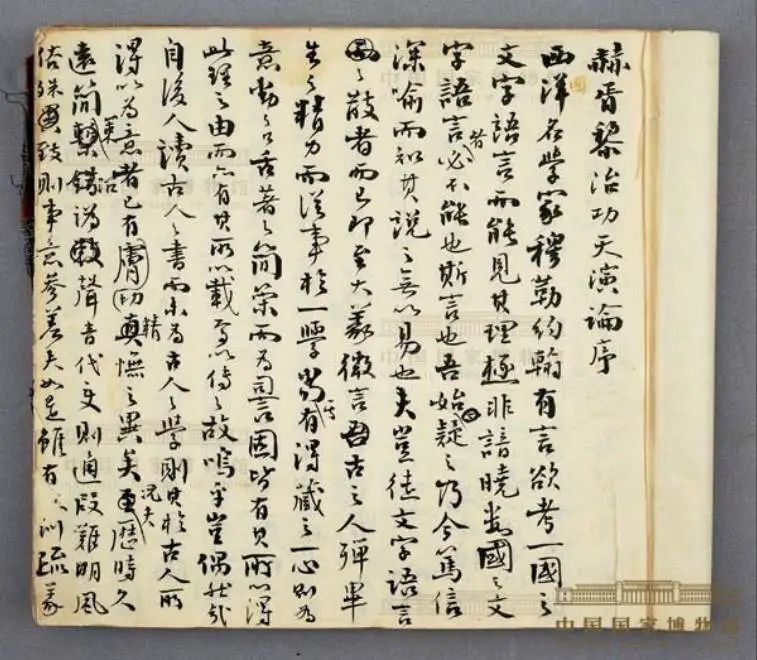 赫胥黎治功天演論序
西洋名學家穆勒約翰有言欲考一國之
文字語言而能見其理極非諳曉數國之文
字語言者必不能也斯言也吾始疑之乃今篤信
深喻而知其說之無以易也夫豈徒文字語言
之散者而已即至大義微言古之人殫畢
生之精力而從事於一學當有得藏之一心則為
意動之口舌著之簡策而為詞固皆有其所以得
此理之由而亦有其所以載焉以傳之故嗚乎豈偶然哉
自後人讀古人之書而未為古人之學則其於古人所
得以為意者已有膚切精憮之異矣況夫歷時久
遠簡錯譌聲音代變則通叚難明風
俗殊則事意參差夫如是雖有訓疏義
中国国家博物馆